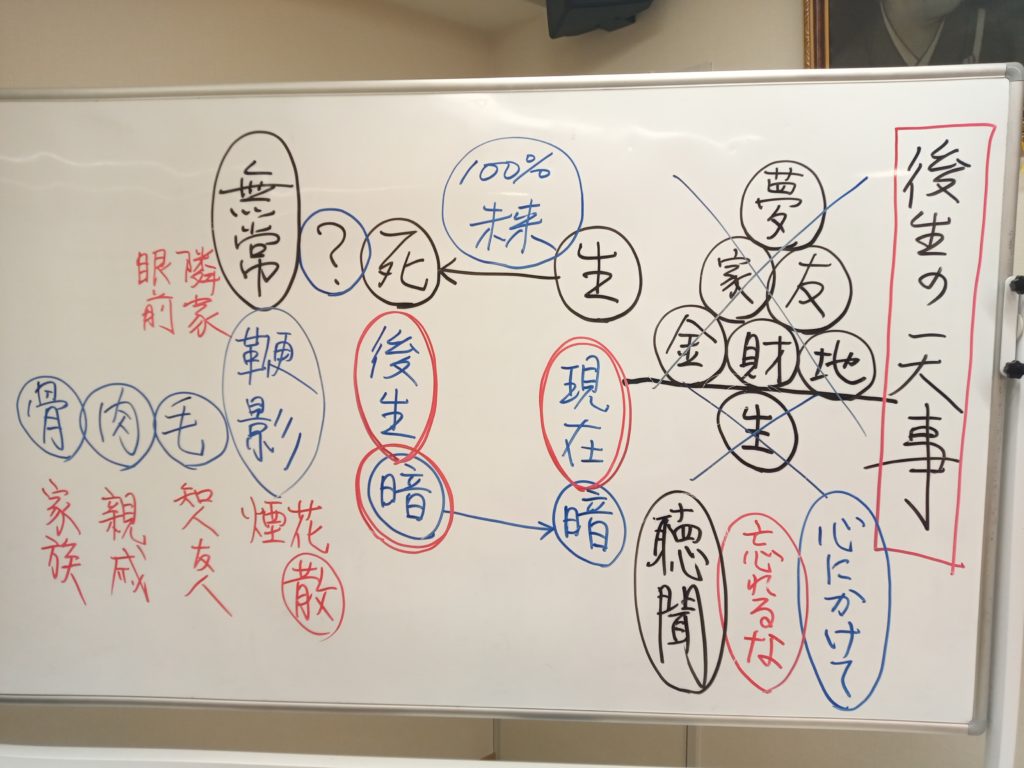 後生の一大事
夢
家 友
金 財 地
生
心にかけて
忘れるな
聴聞
生
100%
未来
死
?
無常
現在
暗
後生
暗
鞭影
隣家
眼前
毛
肉
骨
花
散
煙
知人友人
親戚
家族